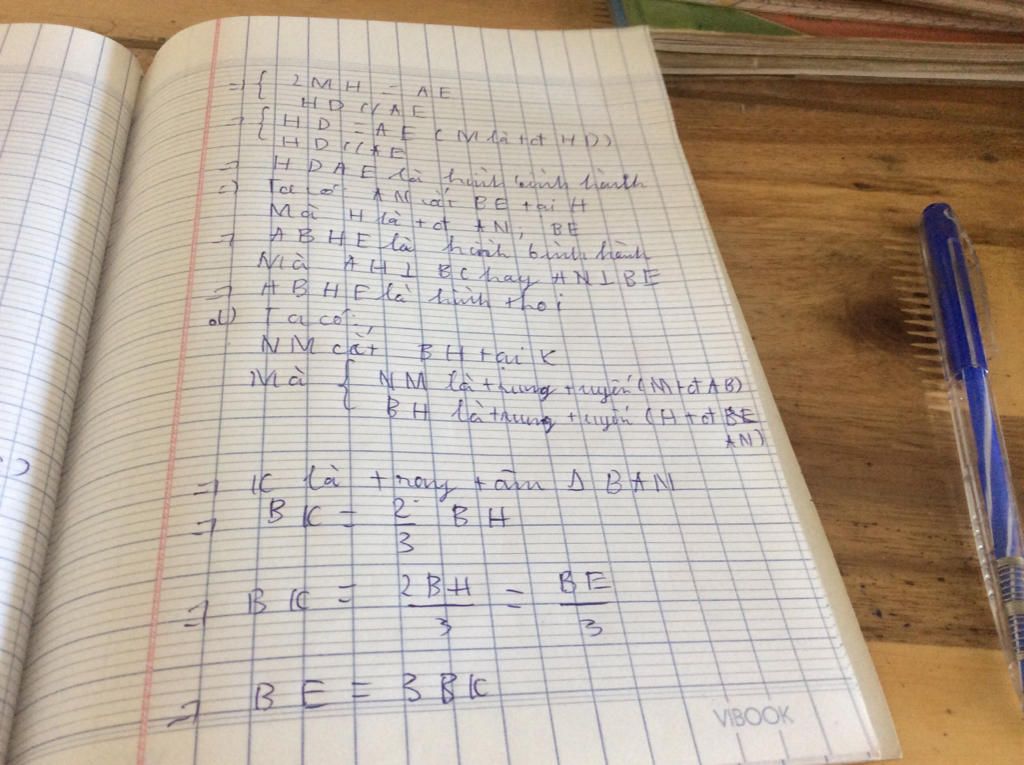 => { 2MH = AE
HD // AE
=> { HD = AE (M là tđ HD)
HD // AE
=> HDAE là hình bình hành
=> Ta có AN cắt BE tại H
Mà H là tđ AN, BE
=> ABHE là hình bình hành
Mà AH ⊥ BC hay AN ⊥ BE
=> ABHE là hình thoi
d) Ta có:
NM cắt BH tại K
Mà { NM là trung tuyến (M tđ AB)
BH là trung tuyến (H tđ BE
AN)
=> K là trọng tâm Δ BAN
=> BK = 2/3 BH
=> BK = 2BH/3 = BE/3
=> BE = 3BK
VIBOOK